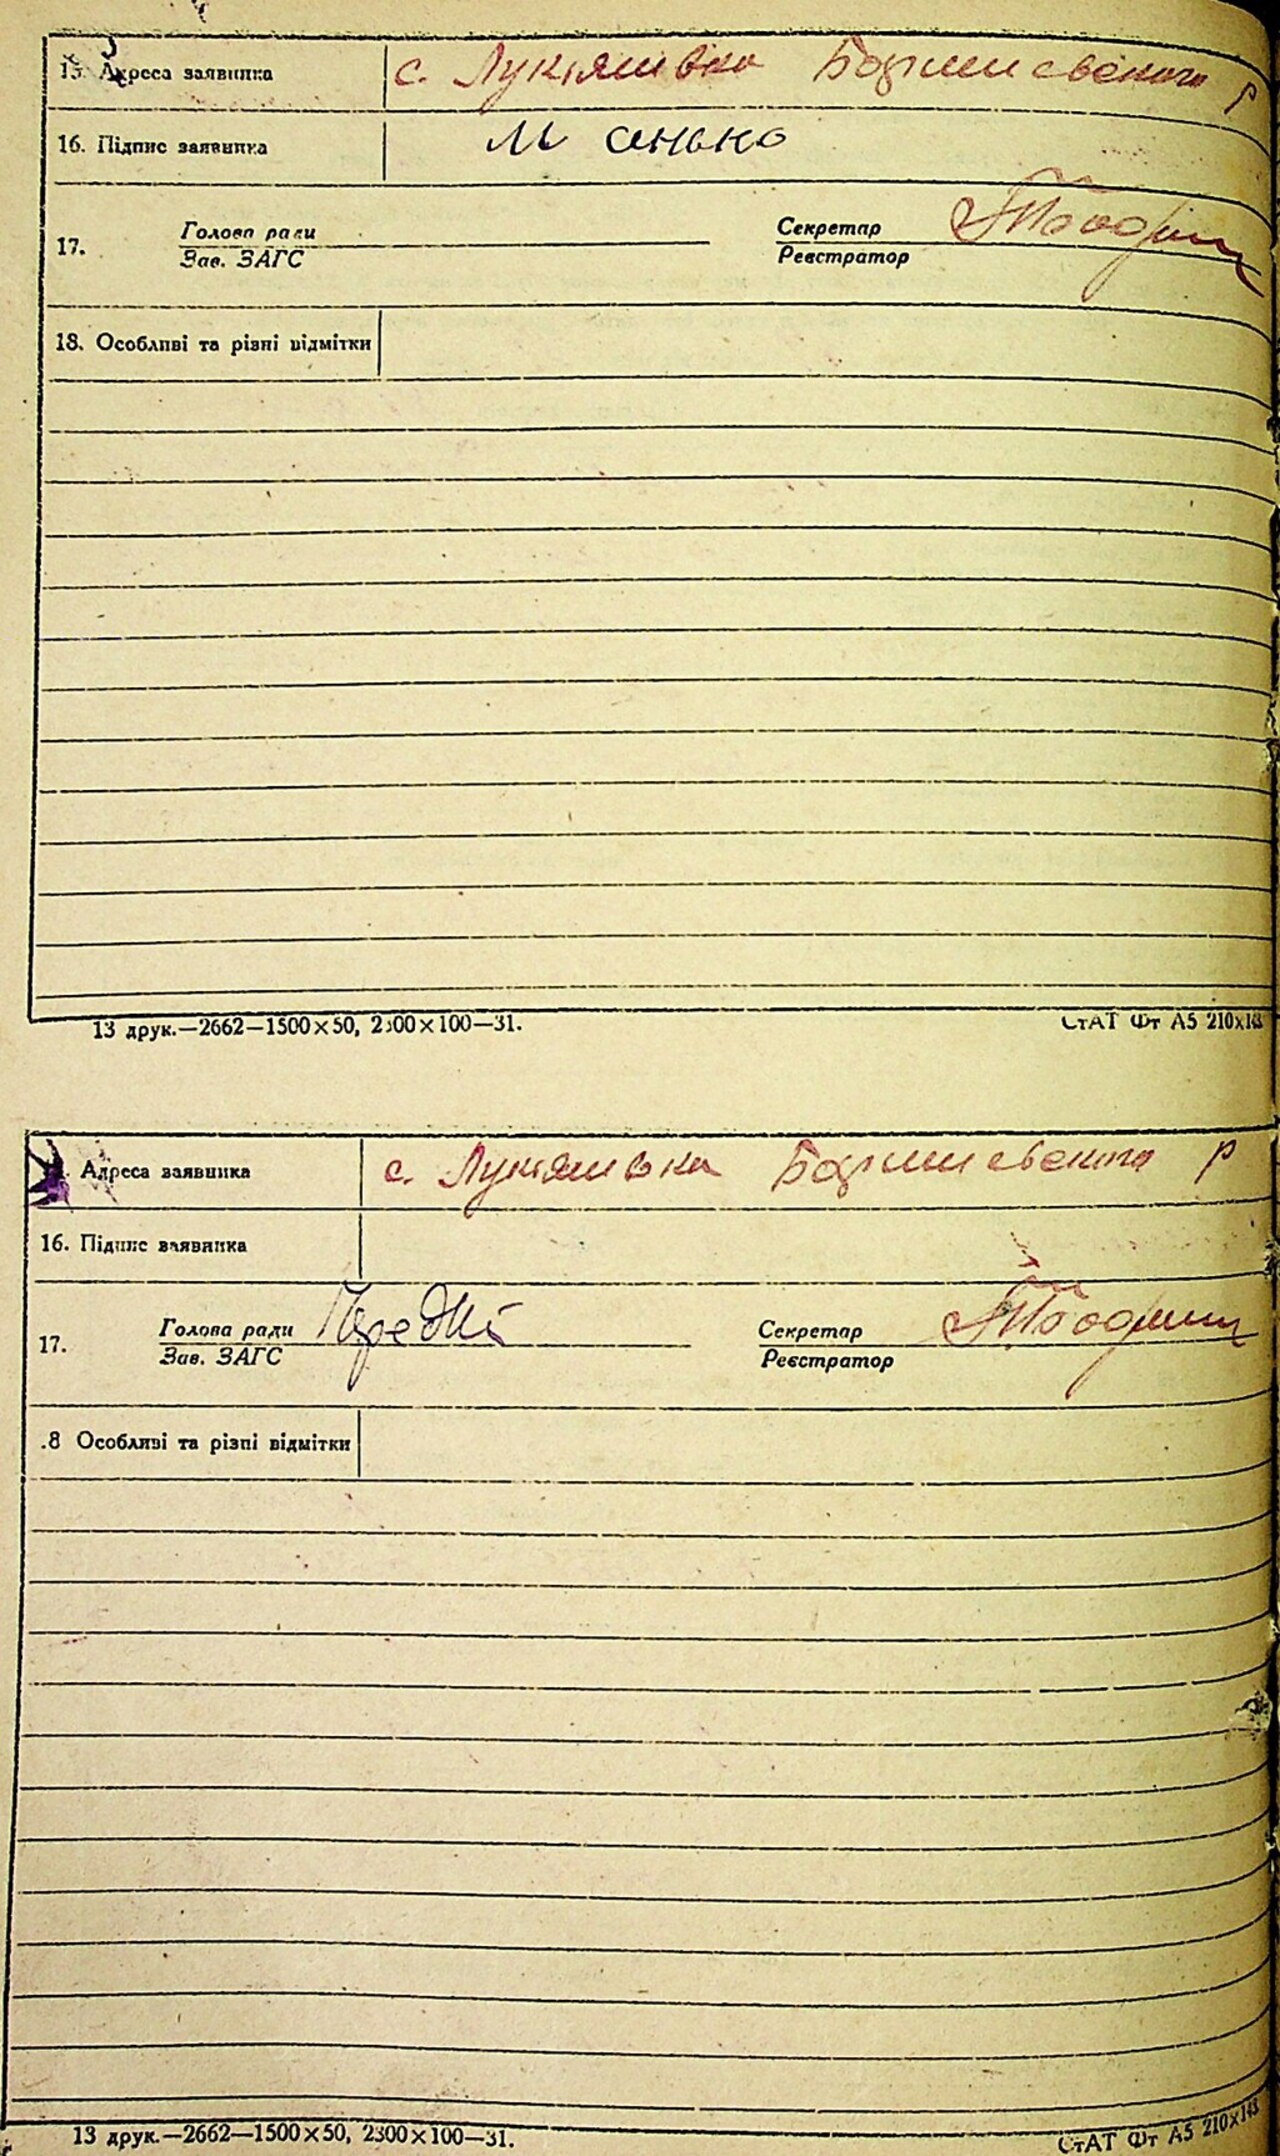 15. Адреса заявника с. Лукяшівка Боришевского Р
16. Підпис заявника М анько
17. Голова ради Секретар
Зав. ЗАГС Реєстратор
18. Особливі та різні відмітки
13 друк.—2662—1500×50, 2300×100—31. СтАТ Фт А5 210×148
Адреса заявника с. Лукяшівка Боришевского Р
16. Підпис заявника
17. Голова ради Секретар
Зав. ЗАГС Реєстратор
.8 Особливі та різні відмітки
13 друк.—2662—1500×50, 2300×100—31. СтАТ Фт А5 210×148